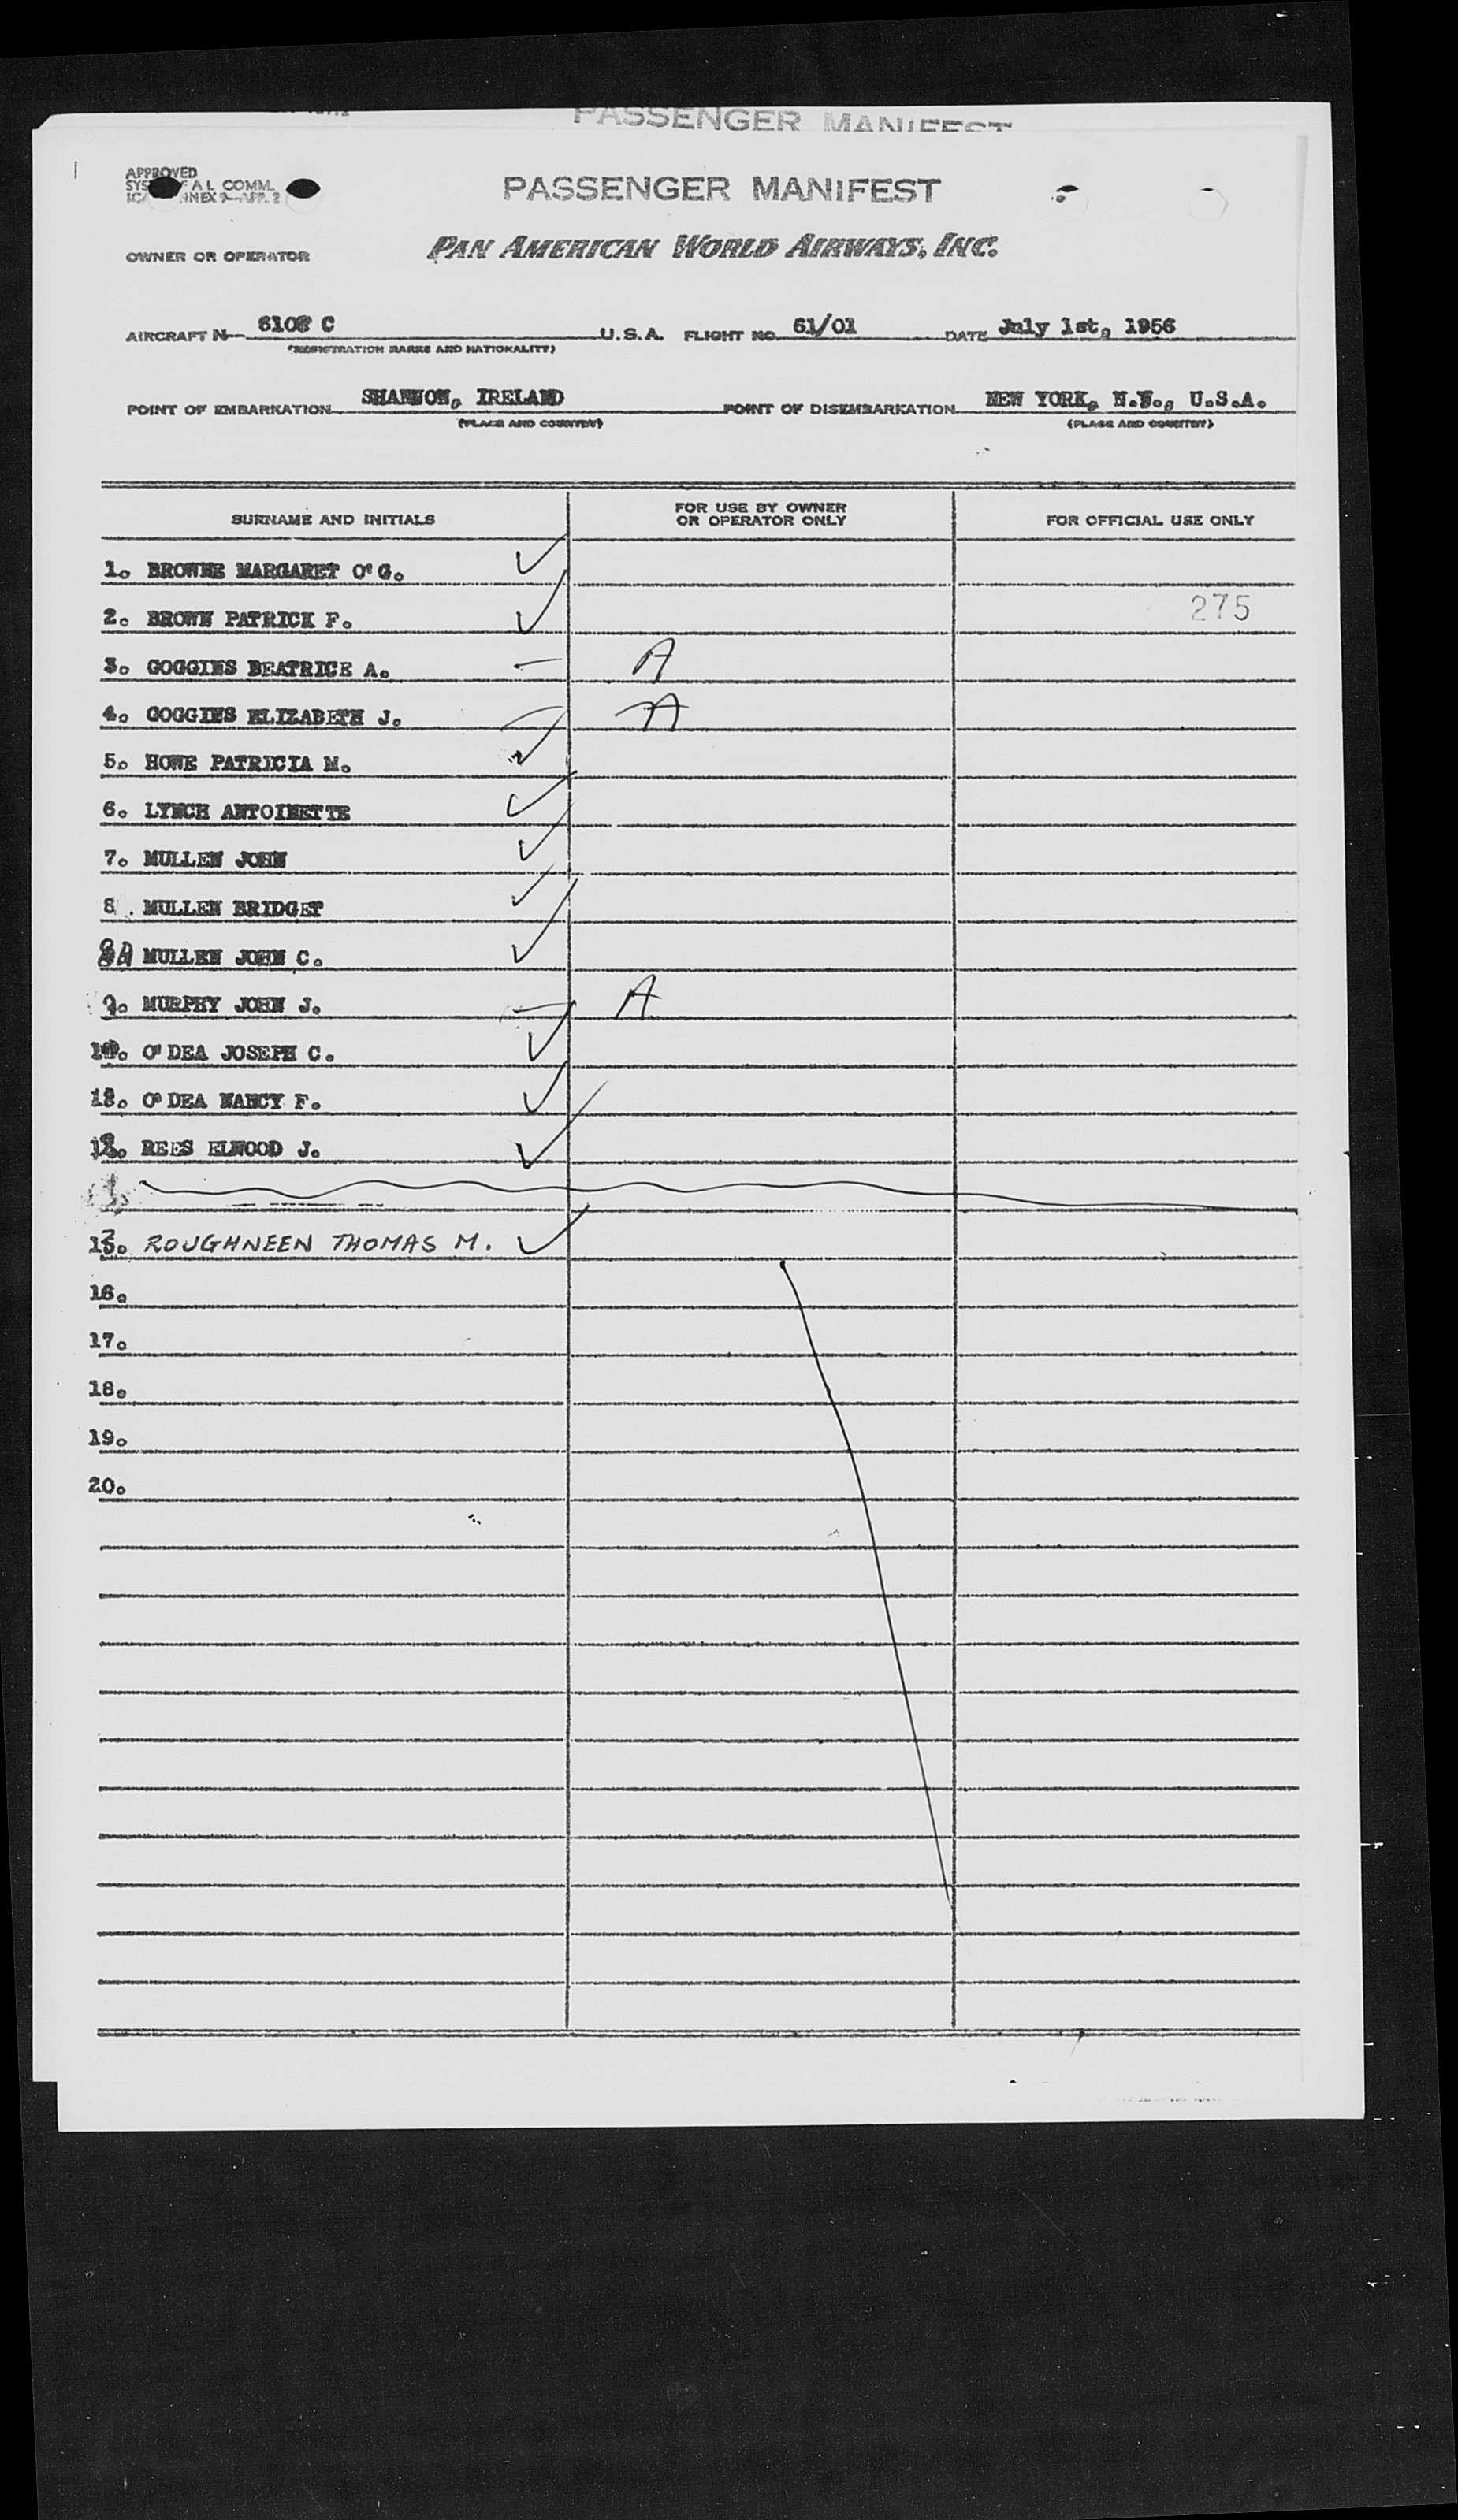 PASSENGER MANIFEST
APPROVED
COMM.
PASSENGER MANIFEST
OWNER OR OPERATOR
PAN AMERICAN WORLD AIRWAYS, INC.
AIRCRAFT N- 6108 C U.S.A. FLIGHT NO. 61/01 DATE July 1st, 1956
(REGISTRATION MARKS AND NATIONALITY)
POINT OF EMBARKATION SHANNON, IRELAND POINT OF DISEMBARKATION NEW YORK, N.Y., U.S.A.
(PLACE AND COUNTRY) (PLACE AND COUNTRY)
SURNAME AND INITIALS FOR USE BY OWNER OR OPERATOR ONLY FOR OFFICIAL USE ONLY
1. BROWNE MARGARET O'G.
2. BROWN PATRICK F. 275
3. GOGGINS BEATRICE A. A
4. GOGGINS ELIZABETH J. A
5. HOWE PATRICIA M.
6. LYNCH ANTOINETTE
7. MULLEN JOHN
8. MULLEN BRIDGET
8A MULLEN JOHN C.
9. MURPHY JOHN J. A
10. O'DEA JOSEPH C.
O'DEA NANCY F.
REES ELWOOD J.
ROUGHNEEN THOMAS M.
16.
17.
18.
19.
20.